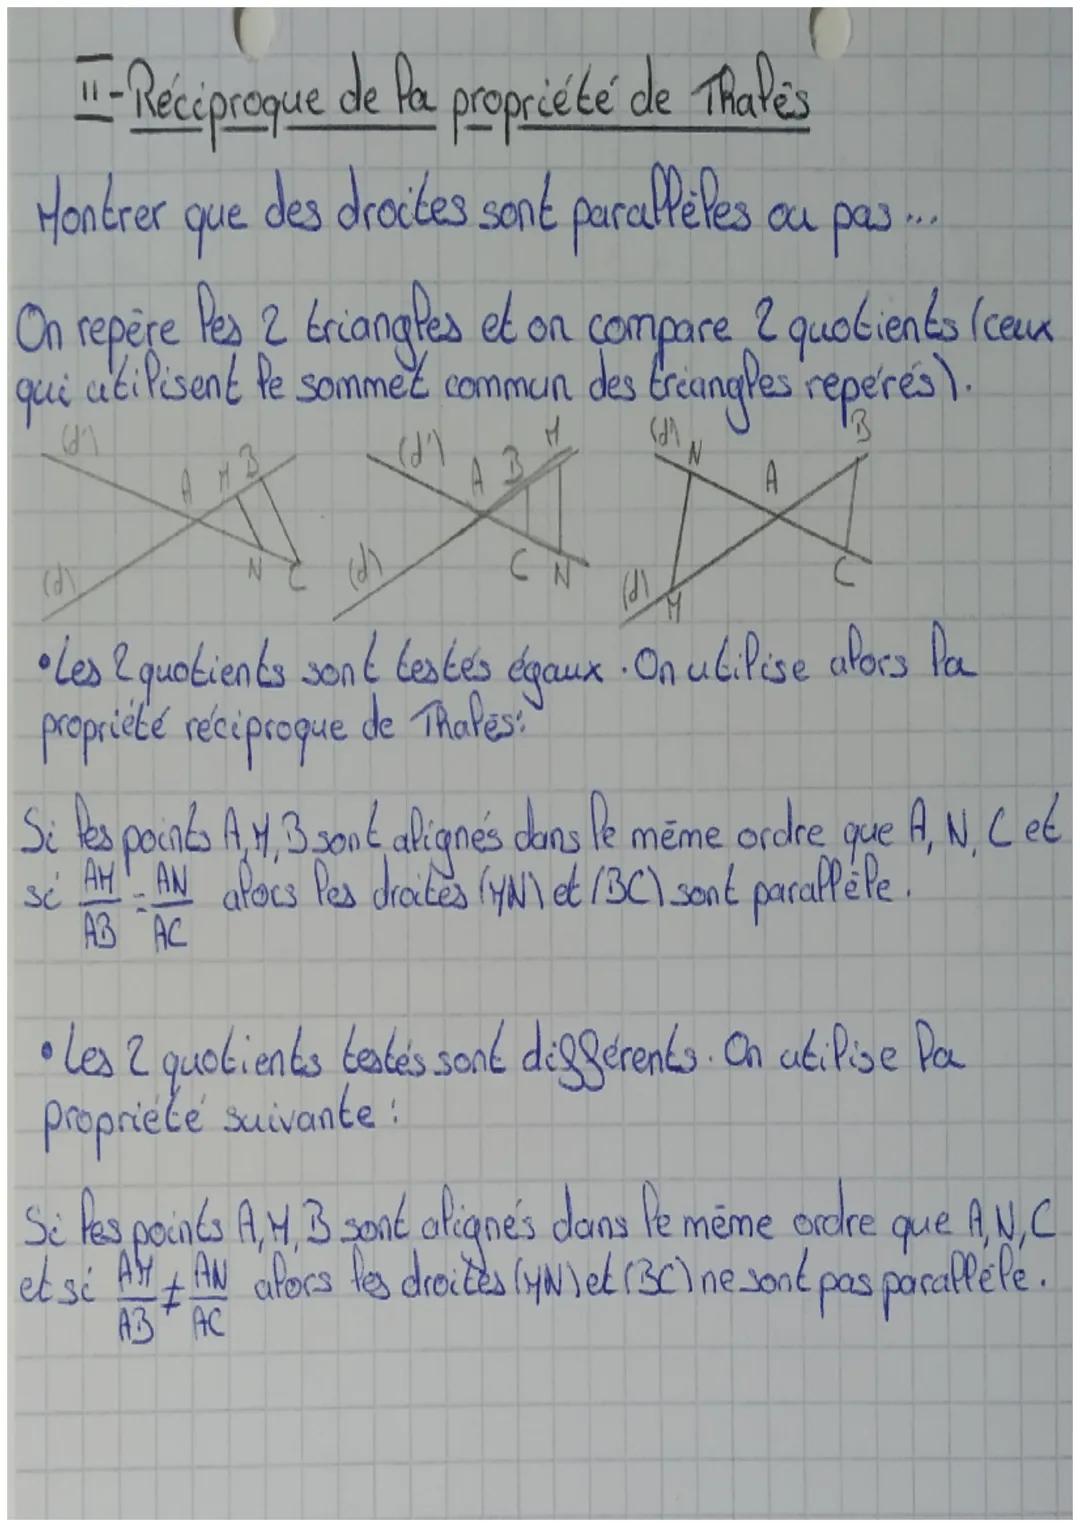 II-Réciproque de la propriété de Thalès
Montrer que des droites sont parallèles ou pas...
On repère les 2 triangles et on compare 2 quotients (ceux
qui utilisent le sommet commun des triangles repérés).
(d') A M B N C (d)
(d') A B M C N (d)
(d') N A B C M (d)
•Les 2 quotients sont testés égaux. On utilise alors la
propriété réciproque de Thalès:
Si les points A, M, B sont alignés dans le même ordre que A, N, C et
si AM/AB = AN/AC alors les droites (MN) et (BC) sont parallèle.
•Les 2 quotients testés sont différents. On utilise la
propriété suivante :
Si les points A, M, B sont alignés dans le même ordre que A, N, C
et si AM/AB ≠ AN/AC alors les droites (MN) et (BC) ne sont pas parallèle.